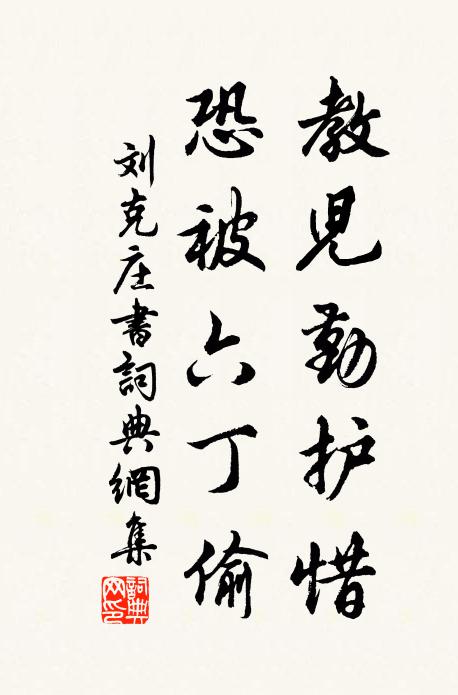 教児勤护惜
恐被六丁偷
刘克庄書詞典網集
詞典网印